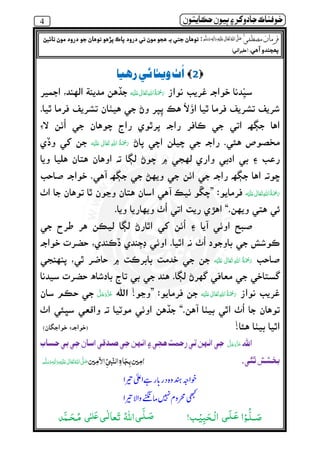 خوفناڪ جادوگر ۽ ٻيون حڪايتون
4
فرمانِ مصطفيٰ صَلَّى اللّٰهُ تَعَالٰى عَلَيْهِ وَاٰلِهٖ وَسَلَّم: توهان جتي به هجو مون تي درود پاڪ پڙهو توهان جو درود مون تائين
پهچندو آهي. (طبراني)
﴿2﴾ اُٺ ويٺائي رهيا
سيّدنا خواجہ غريب نواز رَحْمَةُ اللّٰهِ تَعَالٰى عَلَيْهِ جڏهن مدينة الهند، اجمير
شريف تشريف فرما ٿيا اوّلاً هڪ پپر وڻ جي هيٺان تشريف فرما ٿيا.
اها جڳهه اتي جي ڪافر راجہ پرٿوي راج چوهان جي اُٺن لاءِ
مخصوص هئي. راجہ جي چيلن اچي پاڻ رَحْمَةُ اللّٰهِ تَعَالٰى عَلَيْهِ جن کي وڏي
رعب ۽ بي ادبي واري لهجي ۾ چوڻ لڳا تہ اوهان هتان هليا ويا
ڇوته اها جڳهه راجہ جي اٺن جي ويهڻ جي جڳهه آهي. خواجہ صاحب
رَحْمَةُ اللّٰهِ تَعَالٰى عَلَيْهِ فرمايو: ”چڱو ٺيڪ آهي اسان هتان وڃون ٿا توهان جا اٺ
ئي هتي ويهن.“ اهڙي ريت اتي اُٺ ويهاريا ويا.
صبح اوٺي آيا ۽ اُٺن کي اٿارڻ لڳا ليڪن هر طرح جي
ڪوشش جي باوجود اُٺ نہ اٿيا. اوٺي ڊڄندي ڏڪندي، حضرت خواجہ
صاحب رَحْمَةُ اللّٰهِ تَعَالٰى عَلَيْهِ جن جي خدمت بابرڪت ۾ حاضر ٿي، پنهنجي
گستاخي جي معافي گهرڻ لڳا. هند جي بي تاج بادشاه حضرت سيدنا
غريب نواز رَحْمَةُ اللّٰهِ تَعَالٰى عَلَيْهِ جن فرمايو: ”وڃو! الله عَزَّوَجَلَّ جي حڪم سان
توهان جا اُٺ اٿي بيٺا آهن.“ جڏهن اوٺي موٽيا تہ واقعي سڀئي اٺ
اٿيا بيٺا هئا! (خواجہءِ خواجگان)
الله عَزَّوَجَلَّ جي انهن تي رحمت هجي ۽ انهن جي صدقي اسان جي بي حساب
بخشش ٿئي. اٰمِين بِجَاهِ النَّبِىِّ الْاَمِين صَلَّى اللّٰهُ تَعَالٰى عَلَيْهِ وَاٰلِهٖ وَسَلَّم
خواجۂ ہند وہ دربار ہے اعلیٰ تیرا
کبھی محروم نہیں مانگنے والا تیرا
صَلُّوْا عَلَى الْحَبِيْب! صَلَّى اللّٰهُ تَعَالٰى عَلٰى مُحَمَّد